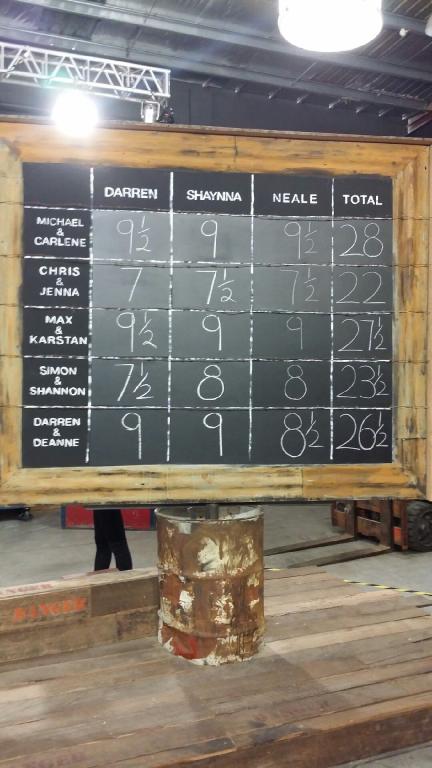 DARREN SHAYNNA NEALE TOTAL
MICHAEL & CARLENE 9½ 9 9½ 28
CHRIS & JENNA 7 7½ 7½ 22
MAX & KARSTAN 9½ 9 9 27½
SIMON & SHANNON 7½ 8 8 23½
DARREN & DEANNE 9 9 8½ 26½
DANGER